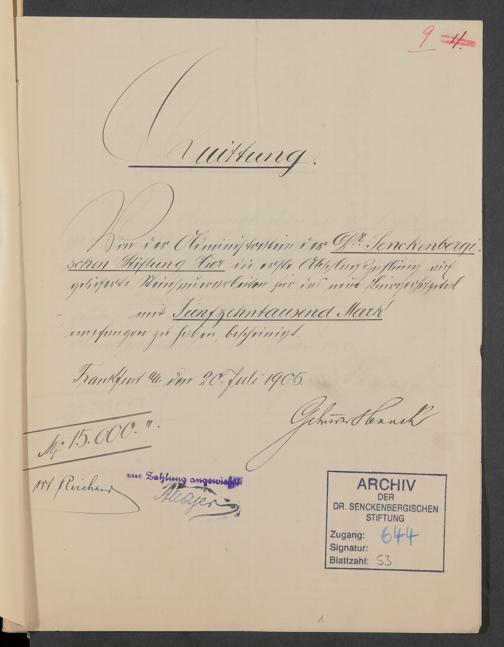 9 11.
Quittung.
Von der Administration der Dr. Senckenbergi-
schen Stiftung hier die erste Abschlagszahlung auf
gelieferte Steinmetzarbeiten für das neue Bürgerhospital
mit Fünfzehntausend Mark
empfangen zu haben bescheinigt
Frankfurt a/M. den 20. Juli 1905.
Gebrüder
M 15.000.
zur Zahlung angewiesen
ARCHIV
DER
DR. SENCKENBERGISCHEN
STIFTUNG
Zugang: 644
Signatur:
Blattzahl: 53